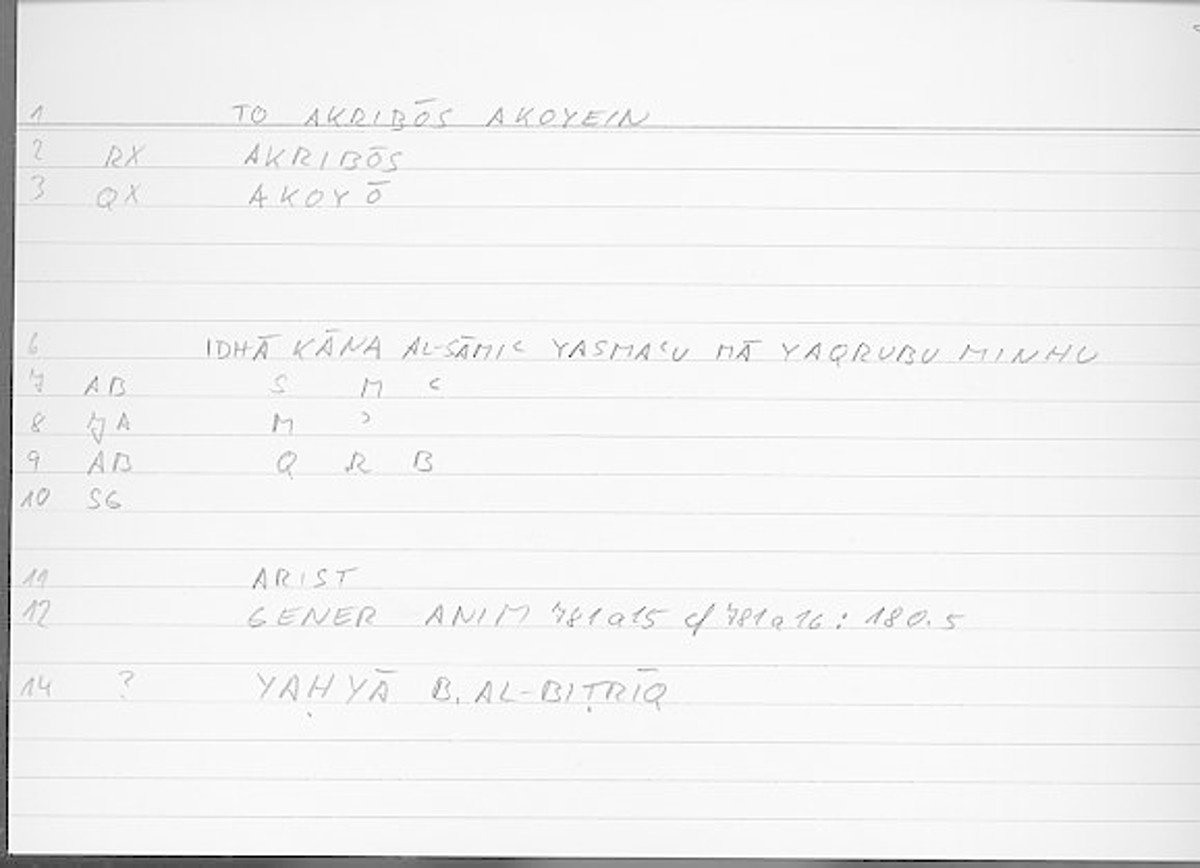 1 TO AKRIBŌS AKOYEIN
2 RX AKRIBŌS
3 QX AKOYŌ
6 IDHĀ KĀNA AL-SĀMIʿ YASMAʿU MĀ YAQRUBU MINHU
7 AB S M ʿ
8 JA M ʾ
9 AB Q R B
10 SG
11 ARIST
12 GENER ANIM 781a15 cf 781a16: 180.5
14 ? YAḤYĀ B. AL-BIṬRĪQ